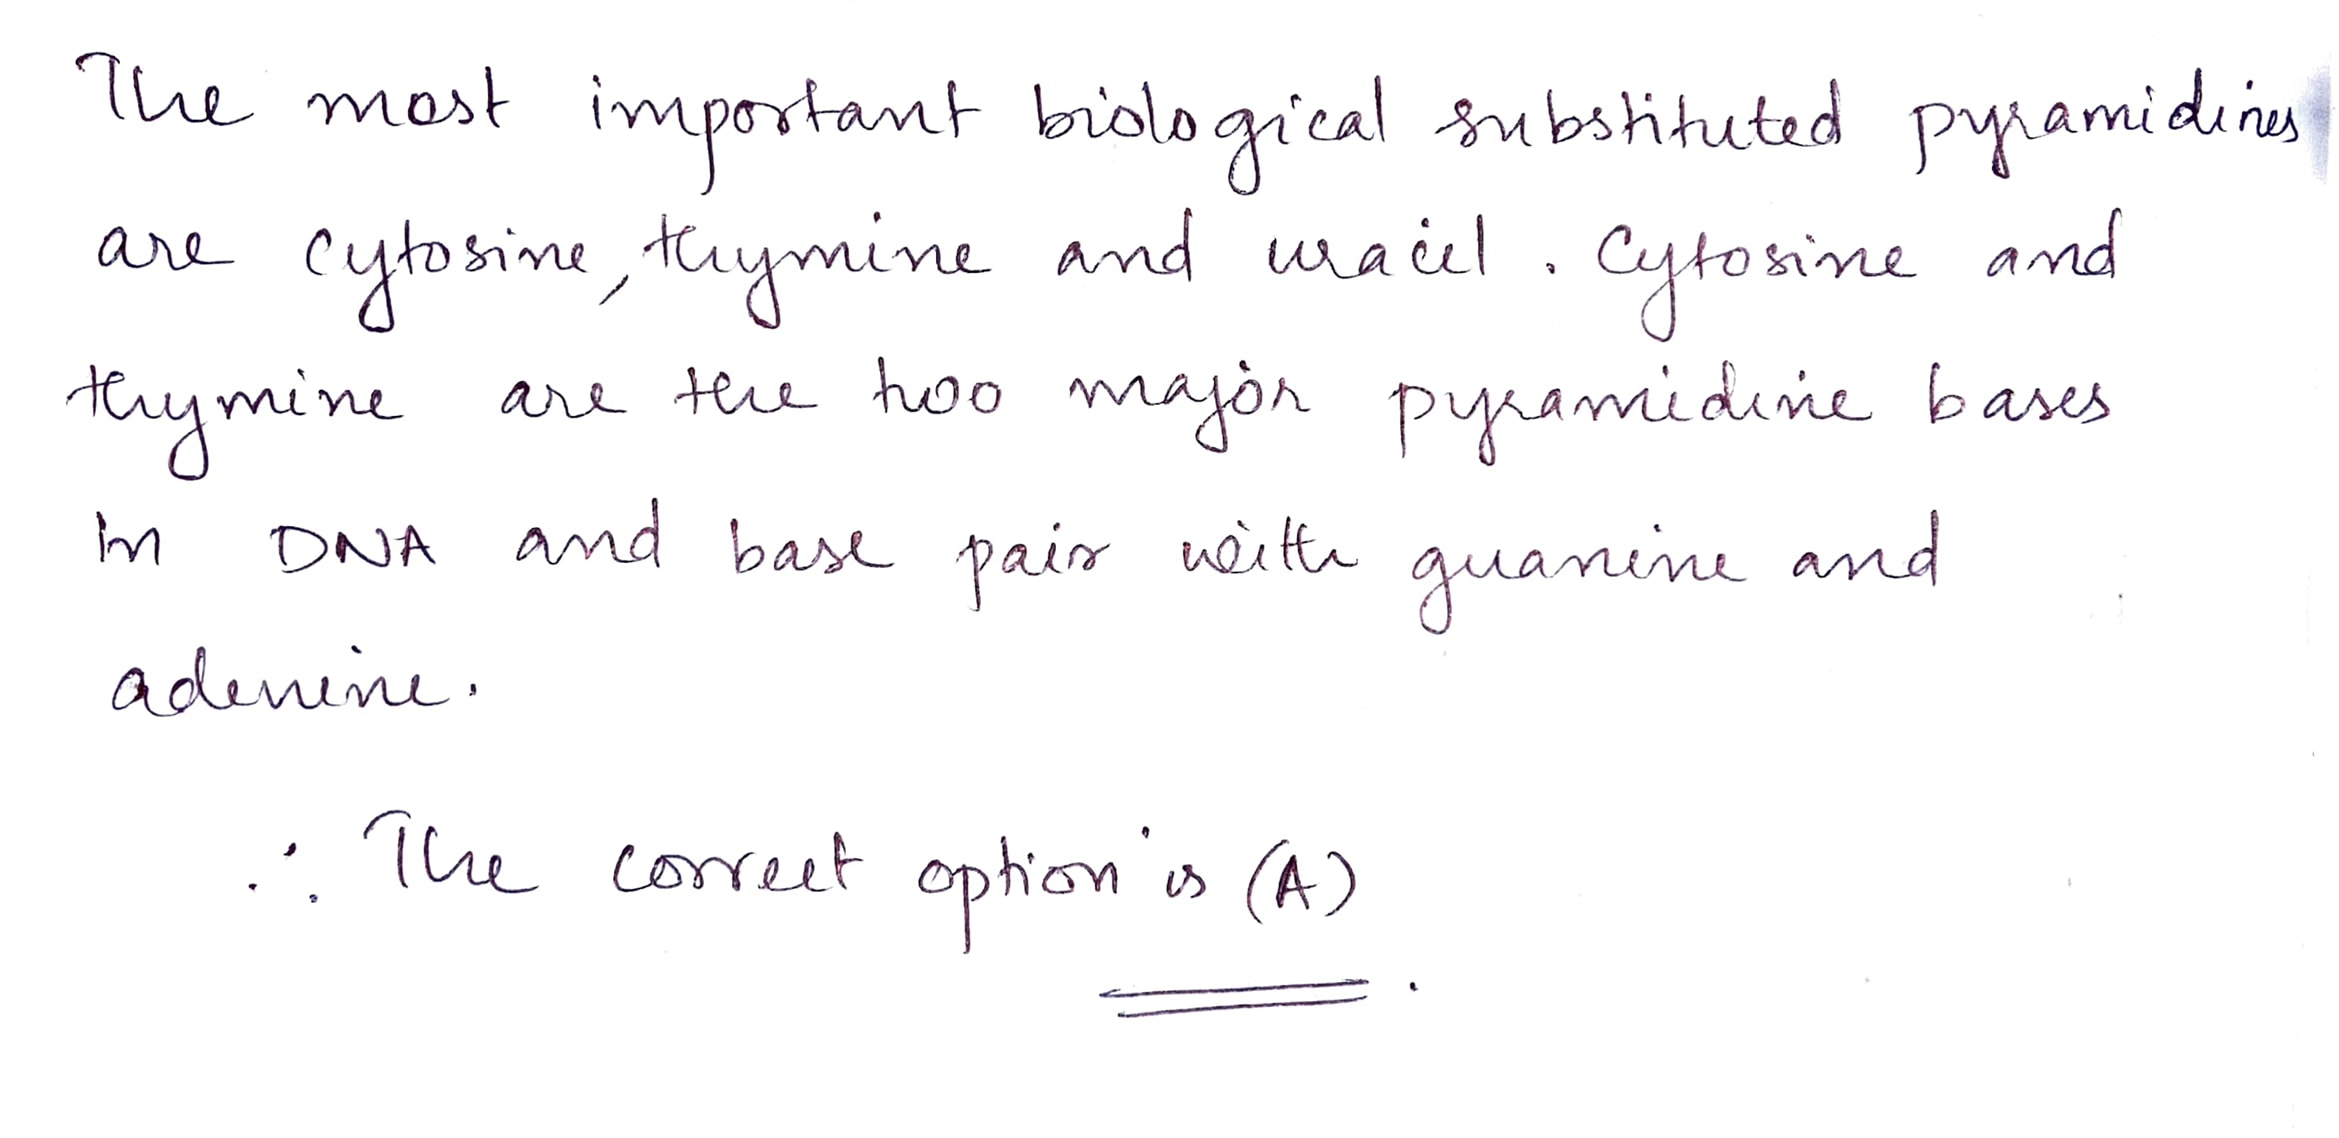 The most important biological substituted pyramidines
are cytosine, thymine and uracil . Cytosine and
thymine are the two major pyramidine bases
in DNA and base pair with guanine and
adenine.
∴ The correct option is (A)